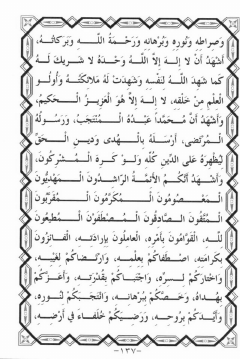 وَصِرَاطِهِ وَنُورِهِ وَبُرْهَانِهِ وَرَحْمَةُ اللهِ وَبَرَكَاتُهُ،
أَشْهَدُ أَنْ لَا إِلهَ إِلَّا اللهُ وَحْدَهُ لَا شَرِيكَ لَهُ
كَمَا شَهِدَ اللهُ لِنَفْسِهِ وَشَهِدَتْ لَهُ مَلَائِكَتُهُ وَأُولُو
الْعِلْمِ مِنْ خَلْقِهِ، لَا إِلهَ إِلَّا هُوَ الْعَزِيزُ الْحَكِيمُ،
وَأَشْهَدُ أَنَّ مُحَمَّداً عَبْدُهُ الْمُنْتَجَبُ، وَرَسُولُهُ
الْمُرْتَضَى، أَرْسَلَهُ بِالْهُدَى وَدِينِ الْحَقِّ
لِيُظْهِرَهُ عَلَى الدِّينِ كُلِّهِ وَلَوْ كَرِهَ الْمُشْرِكُونَ،
وَأَشْهَدُ أَنَّكُمُ الْأَئِمَّةُ الرَّاشِدُونَ الْمَهْدِيُّونَ
الْمَعْصُومُونَ الْمُكَرَّمُونَ الْمُقَرَّبُونَ
الْمُتَّقُونَ الصَّادِقُونَ الْمُصْطَفَوْنَ الْمُطِيعُونَ
لِلّهِ، الْقَوَّامُونَ بِأَمْرِهِ، الْعَامِلُونَ بِإِرَادَتِهِ، الْفَائِزُونَ
بِكَرَامَتِهِ، اصْطَفَاكُمْ بِعِلْمِهِ، وَارْتَضَاكُمْ لِغَيْبِهِ،
وَاخْتَارَكُمْ لِسِرِّهِ، وَاجْتَبَاكُمْ بِقُدْرَتِهِ، وَأَعَزَّكُمْ
بِهُدَاهُ، وَخَصَّكُمْ بِبُرْهَانِهِ، وَانْتَجَبَكُمْ لِنُورِهِ،
وَأَيَّدَكُمْ بِرُوحِهِ، وَرَضِيَكُمْ خُلَفَاءَ فِي أَرْضِهِ،
-١٣٧-